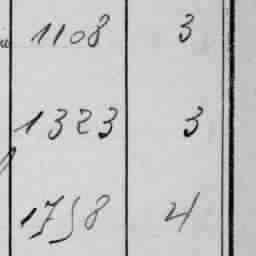 1108 3
1323 3
1758 4